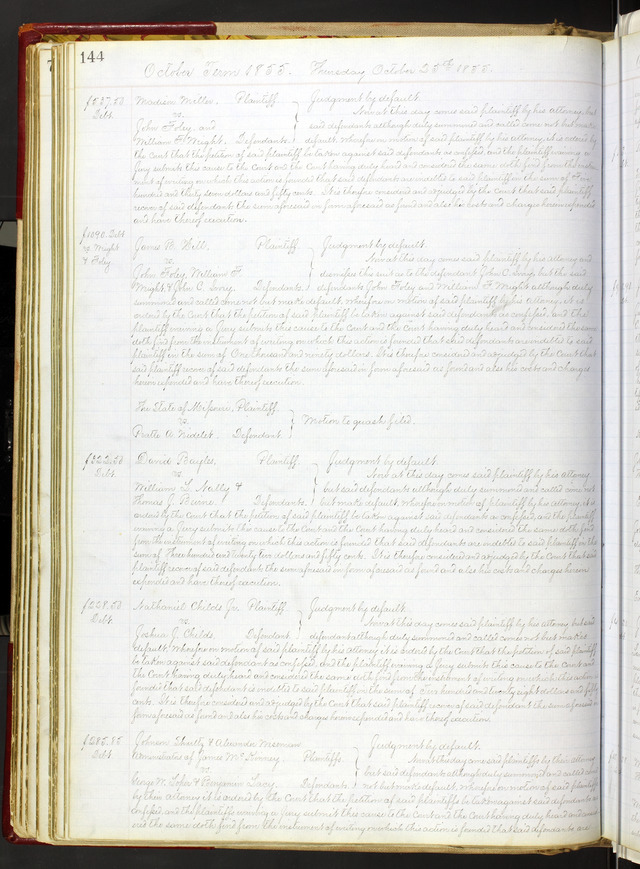 144
October Term 1855. Thursday October 25th 1855.
$537.50 Debt. Madison Miller. Plaintiff. Judgment by default.
vs. Now at this day comes said plaintiff by his attorney, but
John Foley and said defendants although duly summoned and called come not but make
William F. Wright. Defendants. default. Wherefore on motion of said plaintiff by his attorney, it is ordered by
the Court that the petition of said plaintiff be taken against said defendants as confessed, and the plaintiff waiving a
Jury submits this cause to the Court and the Court having duly heard and considered the same doth find from the instru-
ment of writing on which this action is founded that said defendants are indebted to said plaintiff in the sum of Five
hundred and thirty seven dollars and fifty cents. It is therefore considered and adjudged by the Court that said plaintiff
recover of said defendants the sum aforesaid in form aforesaid as found and also his costs and charges herein expended
and have thereof execution.
$1090. Debt
vs Wright
& Foley
James B. Hill. Plaintiff. Judgment by default.
vs. Now at this day comes said plaintiff by his attorney and
John Foley, William F. dismisses this suit as to the defendant John C. but the said
Wright & John C. Defendants. defendants John Foley and William F. Wright although duly
summoned and called come not but make default. Wherefore on motion of said plaintiff by his attorney, it is
ordered by the Court that the petition of said plaintiff be taken against said defendants as confessed, and the
plaintiff waiving a Jury submits this cause to the Court and the Court having duly heard and considered the same
doth find from the instrument of writing on which this action is founded that said defendants are indebted to said
plaintiff in the sum of One thousand and ninety dollars. It is therefore considered and adjudged by the Court that
said plaintiff recover of said defendants the sum aforesaid in form aforesaid as found and also his costs and charges
herein expended and have thereof execution.
The State of Missouri. Plaintiff.
vs. Motion to quash filed.
Pratte Defendant.
$322.50 Debt. David Bayles. Plaintiff. Judgment by default.
vs. Now at this day comes said plaintiff by his attorney
William L. Nalley & but said defendants although duly summoned and called come not
Thomas J. Defendants. but make default. Wherefore on motion of said plaintiff by his attorney, it is
ordered by the Court that the petition of said plaintiff be taken against said defendants as confessed, and the plaintiff
waiving a Jury submits this cause to the Court and the Court having duly heard and considered the same doth find
from the instrument of writing on which this action is founded that said defendants are indebted to said plaintiff in the
sum of Three hundred and twenty two dollars and fifty cents. It is therefore considered and adjudged by the Court that said
plaintiff recover of said defendants the sum aforesaid in form aforesaid as found and also his costs and charges herein
expended and have thereof execution.
$128.50 Debt. Nathaniel Childs Jr. Plaintiff. Judgment by default.
vs. Now at this day comes said plaintiff by his attorney, but said
Joshua J. Childs. Defendant. defendant although duly summoned and called comes not but makes
default. Wherefore on motion of said plaintiff by his attorney it is ordered by the Court that the petition of said plaintiff
be taken against said defendant as confessed, and the plaintiff waiving a Jury submits this cause to the Court and
the Court having duly heard and considered the same doth find from the instrument of writing on which this action is
founded that said defendant is indebted to said plaintiff in the sum of One hundred and twenty eight dollars and fifty
cents. It is therefore considered and adjudged by the Court that said plaintiff recover of said defendant the sum aforesaid in
form aforesaid as found and also his costs and charges herein expended and have thereof execution.
Debt. Johnson & Alexander Judgment by default.
Administrators of James McKinney. Plaintiffs. Now at this day come said plaintiffs by their attorney
vs. but said defendants although duly summoned and called come
George W. & Benjamin Lacy. Defendants. not but make default. Wherefore on motion of said plaintiffs
by their attorney it is ordered by the Court that the petition of said plaintiffs be taken against said defendants as
confessed, and the plaintiffs waiving a Jury submit this cause to the Court and the Court having duly heard and consid-
ered the same doth find from the instrument of writing on which this action is founded that said defendants are